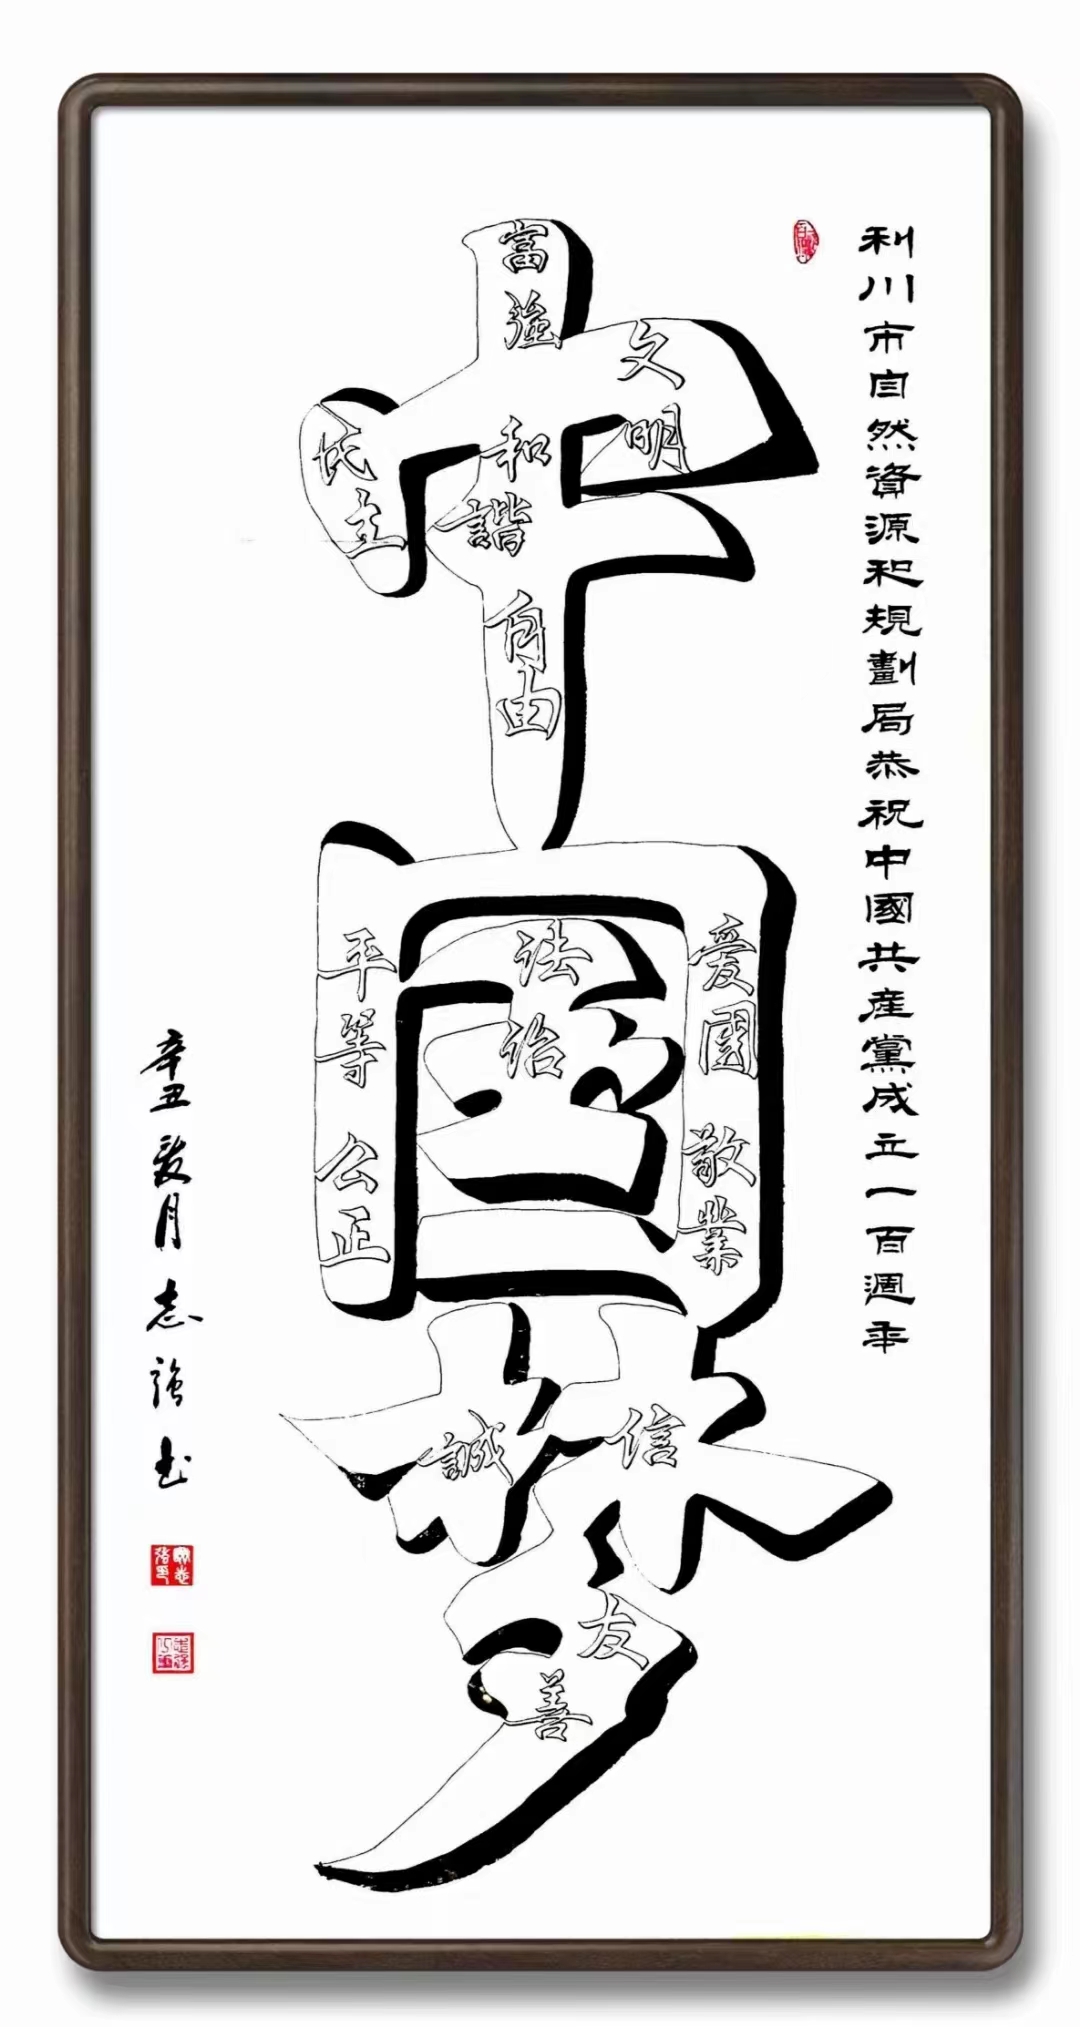 利川市自然資源和規劃局恭祝中國共産黨成立一百週年
中国梦
富強
民主
文明
和諧
自由
平等
公正
法治
爱國
敬業
誠信
友善
辛丑夏月志強书